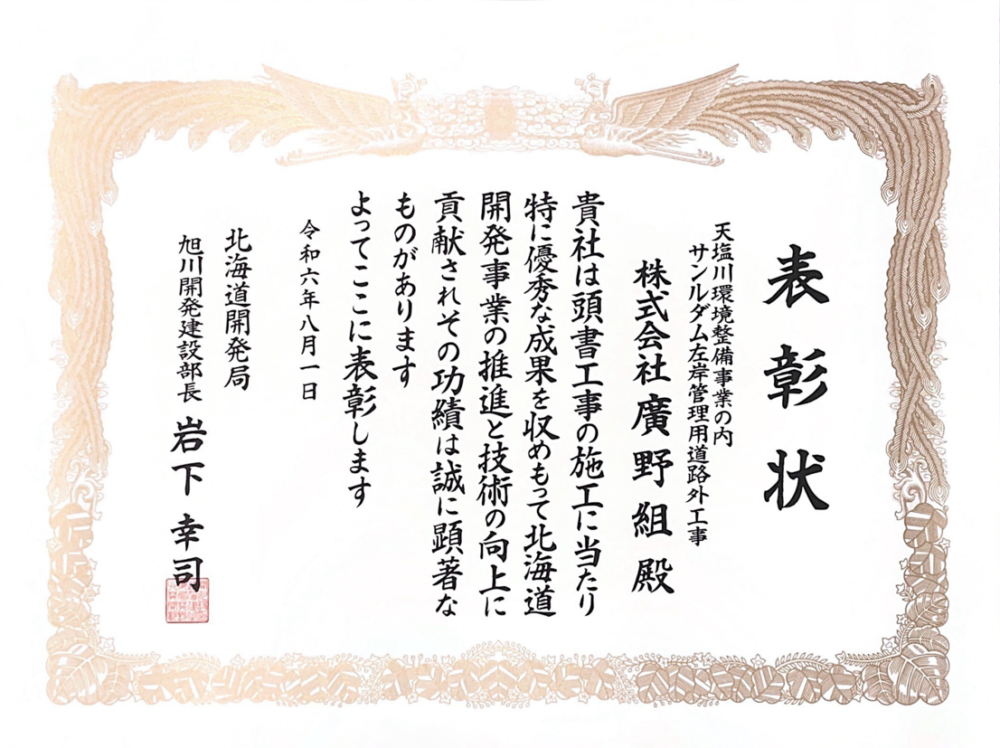 表彰状
天塩川環境整備事業の内
サンルダム左岸管理用道路外工事
株式会社廣野組殿
貴社は頭書工事の施工に当たり
特に優秀な成果を収めもって北海道
開発事業の推進と技術の向上に
貢献されその功績は誠に顕著な
ものがあります
よってここに表彰します
令和六年八月一日
北海道開発局
旭川開発建設部長 岩下幸司